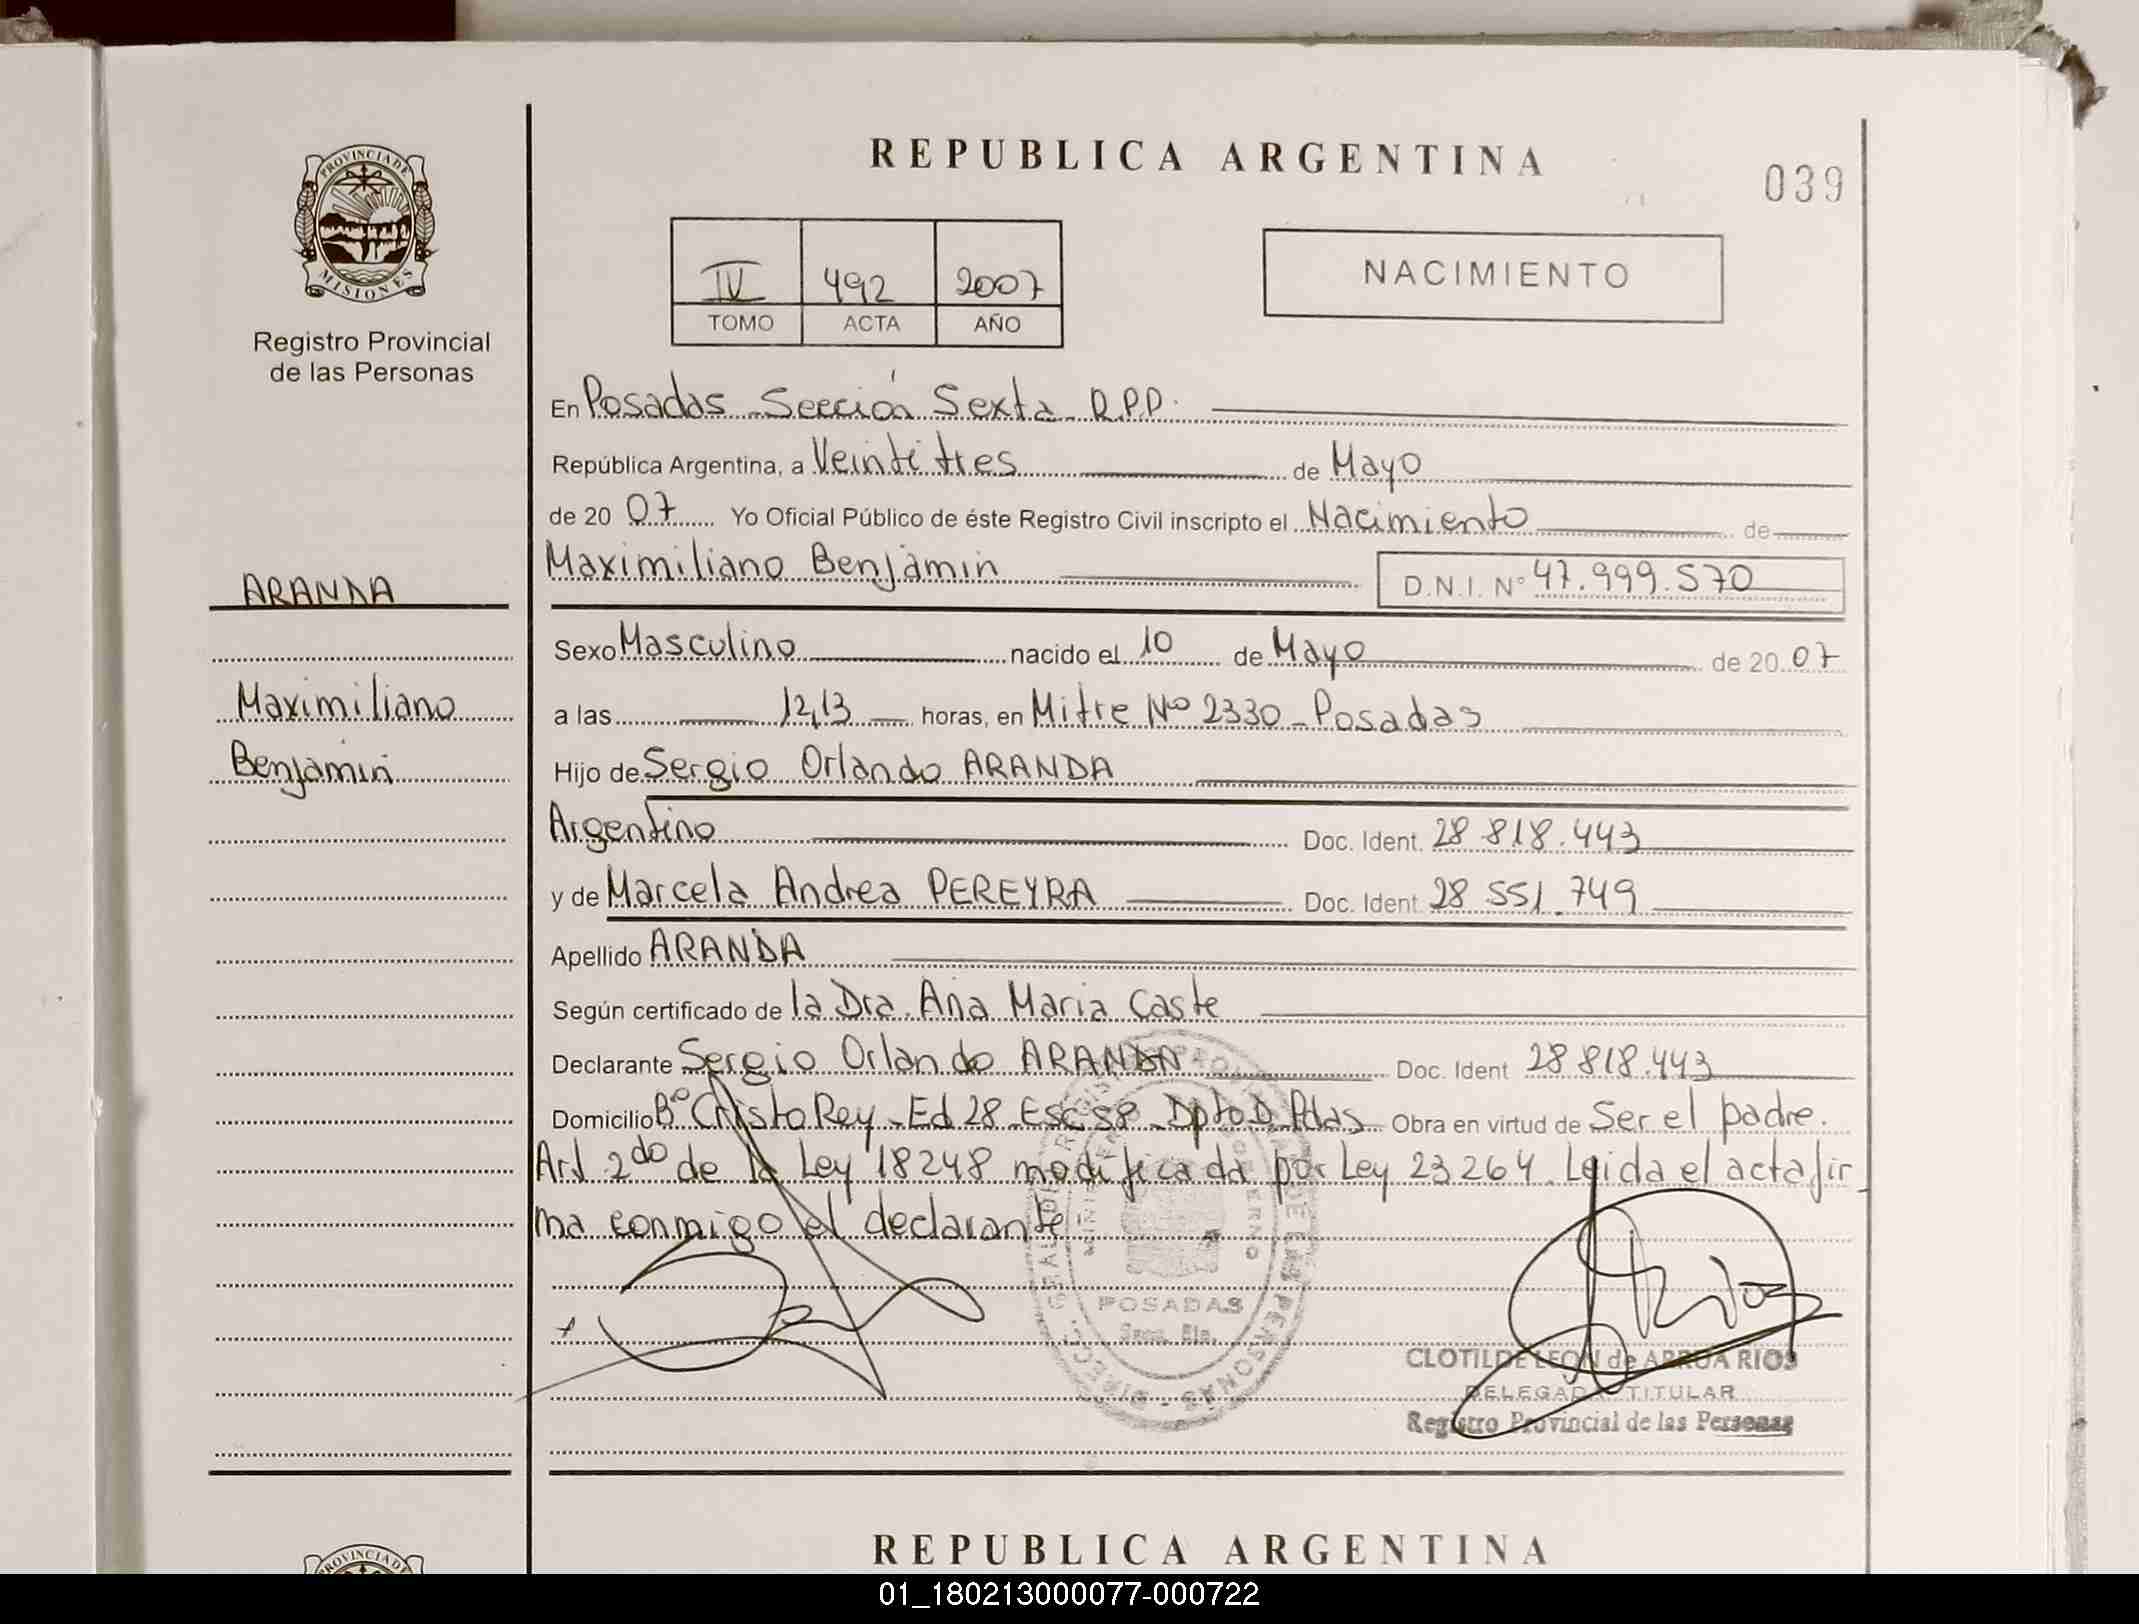 REPUBLICA ARGENTINA
039
PROVINCIA DE
MISIONES
Registro Provincial
de las Personas
IV 492 2007
TOMO ACTA AÑO
NACIMIENTO
En Posadas Sección Sexta R.P.P.
República Argentina, a Veintitres de Mayo
de 20 07 Yo Oficial Público de éste Registro Civil inscripto el Nacimiento de
Maximiliano Benjamin D.N.I. Nº 47.999.570
ARANDA
Maximiliano
Benjamin
Sexo Masculino nacido el 10 de Mayo de 20 07
a las 12,13 horas, en Mitre Nº 2330 - Posadas
Hijo de Sergio Orlando ARANDA
Argentino Doc. Ident. 28 818.443
y de Marcela Andrea PEREYRA Doc. Ident. 28 551.749
Apellido ARANDA
Según certificado de la Dra. Ana Maria Caste
Declarante Sergio Orlando ARANDA Doc. Ident 28 818.443
Domicilio Bº Cristo Rey - Ed 28 Esc 58 Dpto D. Pdas Obra en virtud de Ser el padre.
Art 2do de la Ley 18248 modificada por Ley 23264. Leida el acta fir_
ma conmigo el declarante.
POSADAS
CLOTILDE LEON de ARRUA RIOS
DELEGADA TITULAR
Registro Provincial de las Personas
REPUBLICA ARGENTINA
01_180213000077-000722